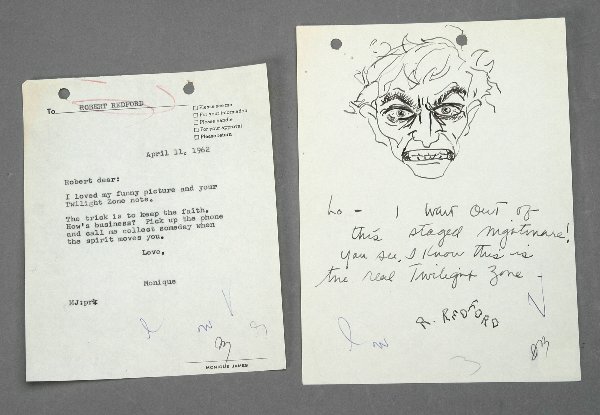 To ROBERT REDFORD
Please see me
For your information
Please handle
For your approval
Please return
April 11, 1962
Robert dear:
I loved my funny picture and your
Twilight Zone note.
The trick is to keep the faith.
How's business? Pick up the phone
and call me collect someday when
the spirit moves you.
Love,
Monique
MJ:prk
MONIQUE JAMES
Lo - I want out of
this staged nightmare!
you see, I know this is
the real Twilight Zone -
R. REDFORD